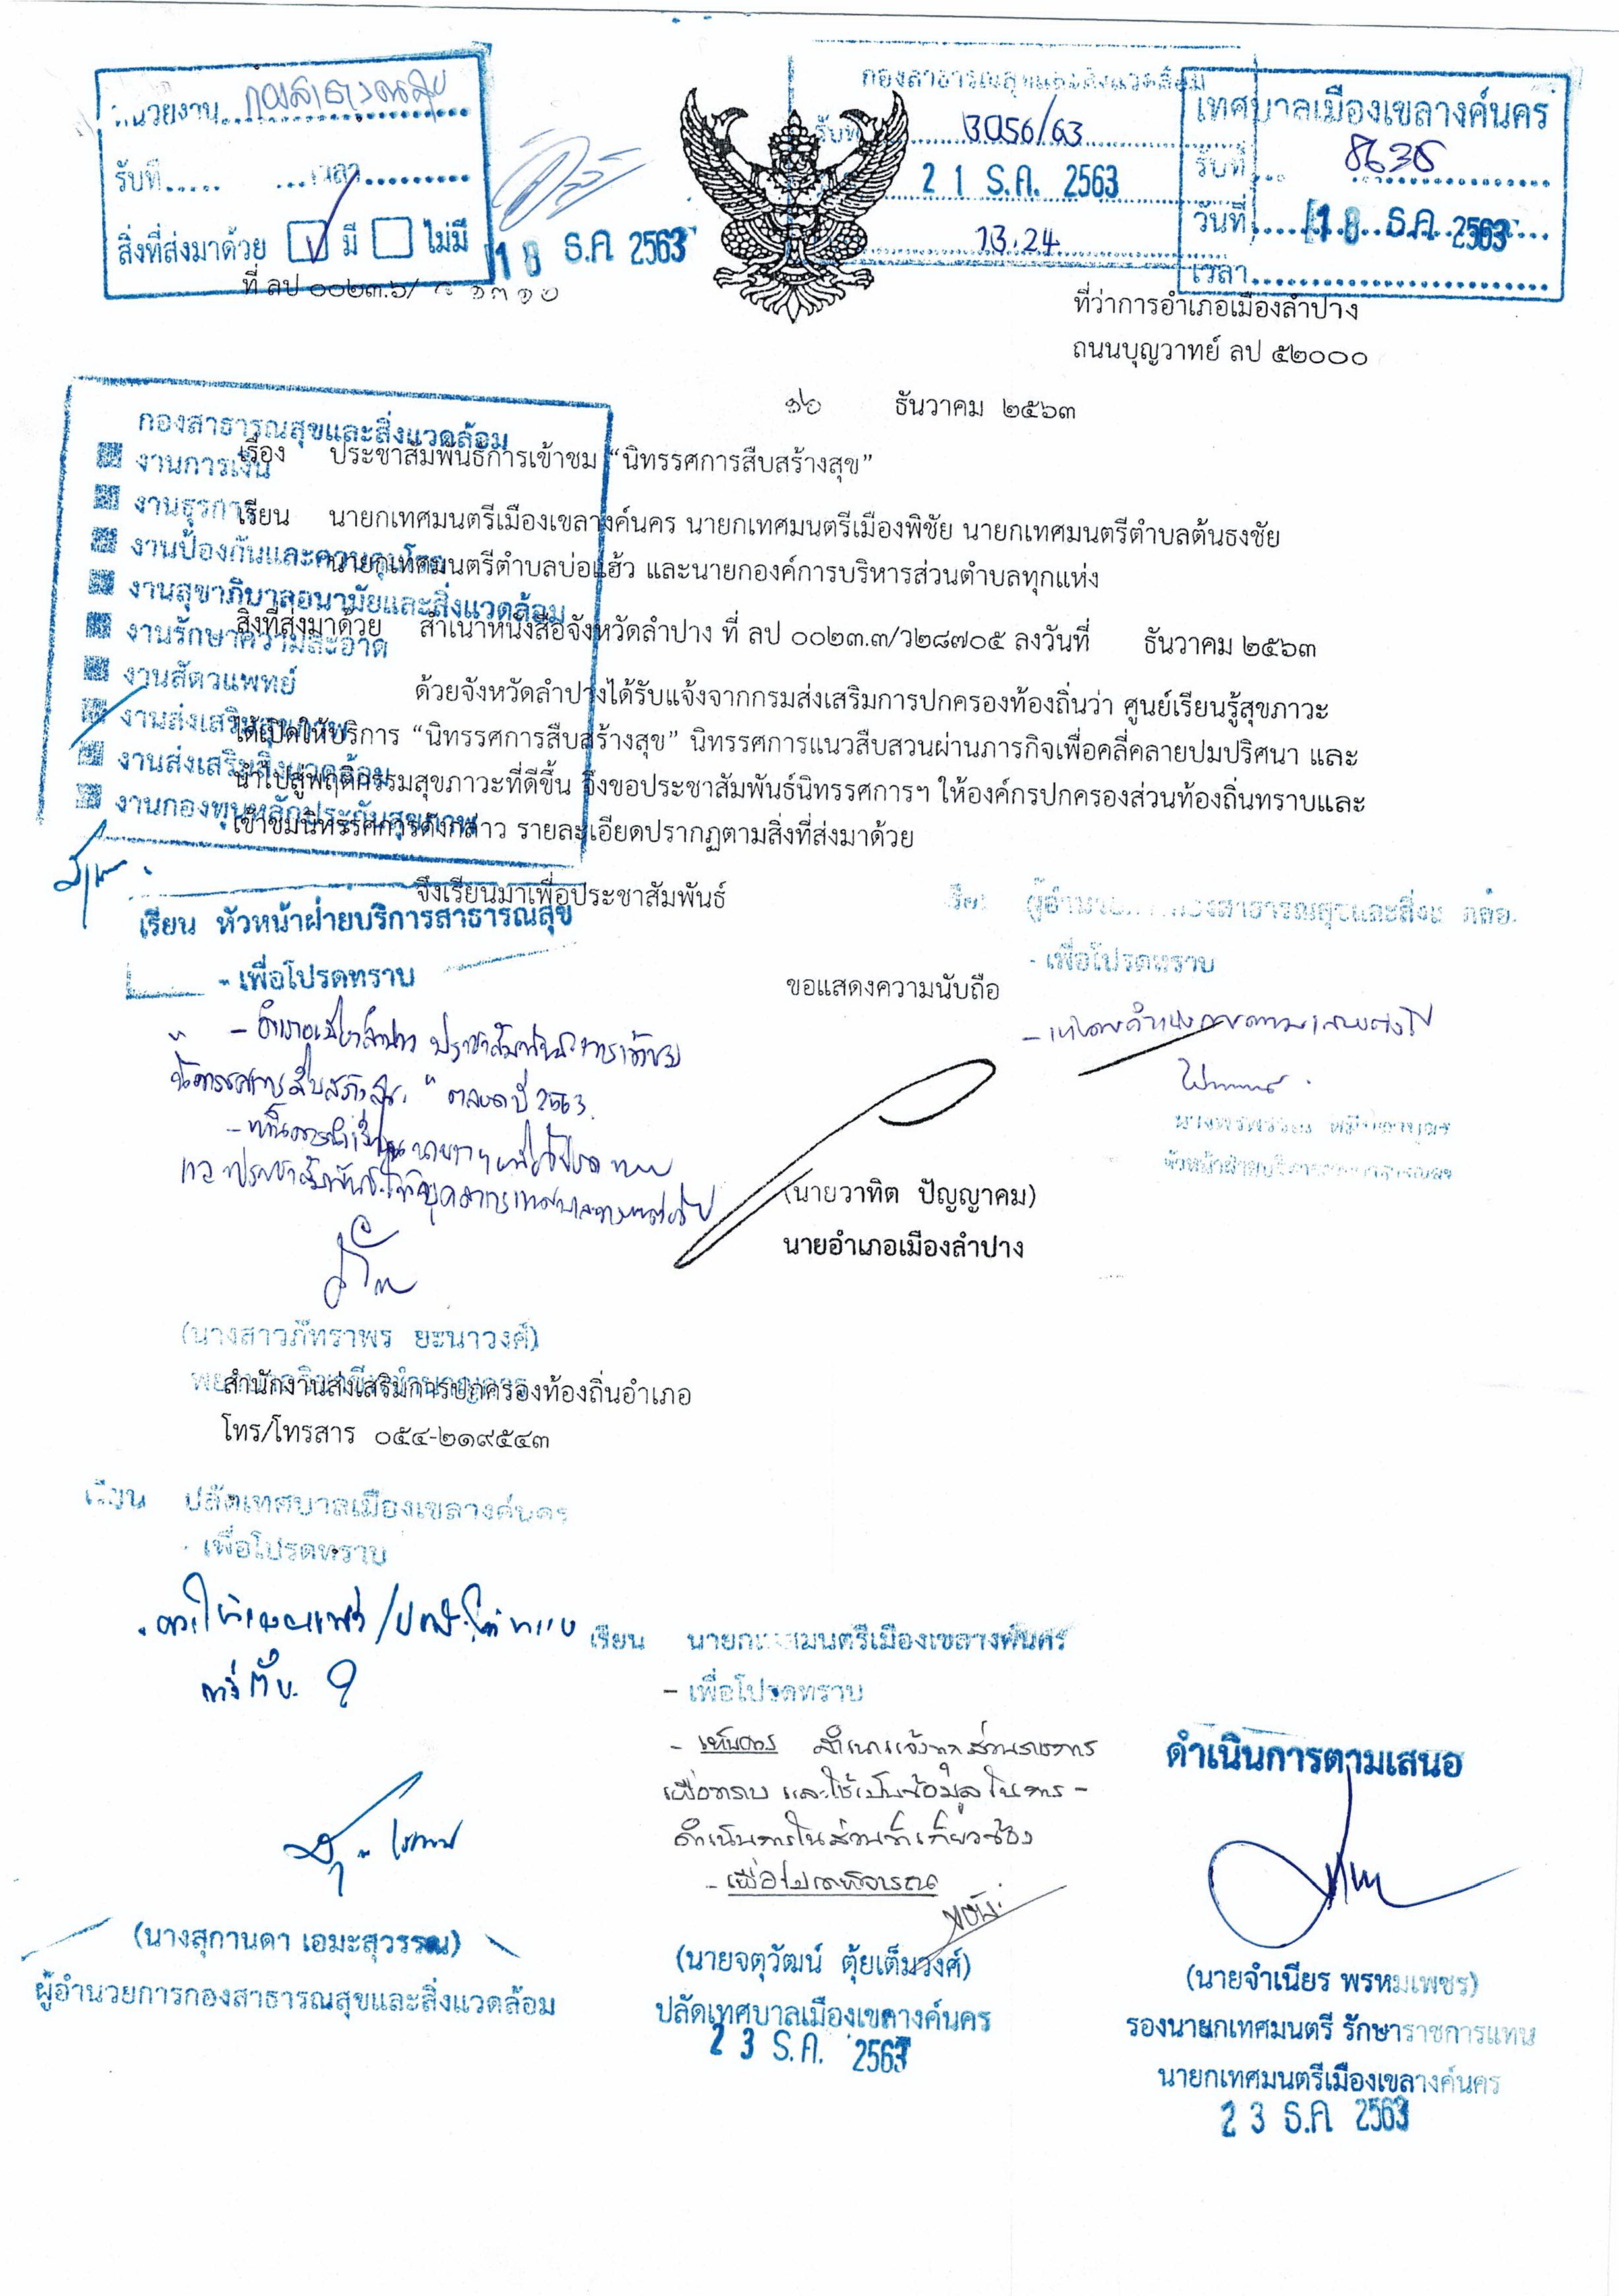 หน่วยงาน กองสาธารณสุข
รับที่..... เวลา..........
สิ่งที่ส่งมาด้วย มี ไม่มี
18 ธ.ค 2563
กองสาธารณสุขและสิ่งแวดล้อม
รับที่ 3056/63
21 ธ.ค. 2563
13.24
เทศบาลเมืองเขลางค์นคร
รับที่
วันที่ 18 ธ.ค. 2563
เวลา
ที่ ลป ๐๐๒๓.๖/
ที่ว่าการอำเภอเมืองลำปาง
ถนนบุญวาทย์ ลป ๕๒๐๐๐
๑๖ ธันวาคม ๒๕๖๓
กองสาธารณสุขและสิ่งแวดล้อม
งานการเงิน
งานธุรการ
งานป้องกันและควบคุมโรค
งานสุขาภิบาลอนามัยและสิ่งแวดล้อม
งานรักษาความสะอาด
งานสัตวแพทย์
งานส่งเสริมสุขภาพ
งานส่งเสริมสิ่งแวดล้อม
งานกองทุนหลักประกันสุขภาพ
เรื่อง ประชาสัมพันธ์การเข้าชม “นิทรรศการสืบสร้างสุข”
เรียน นายกเทศมนตรีเมืองเขลางค์นคร นายกเทศมนตรีเมืองพิชัย นายกเทศมนตรีตำบลต้นธงชัย
นายกเทศมนตรีตำบลบ่อแฮ้ว และนายกองค์การบริหารส่วนตำบลทุกแห่ง
สิ่งที่ส่งมาด้วย สำเนาหนังสือจังหวัดลำปาง ที่ ลป ๐๐๒๓.๓/ว๒๘๗๐๕ ลงวันที่ ธันวาคม ๒๕๖๓
ด้วยจังหวัดลำปางได้รับแจ้งจากกรมส่งเสริมการปกครองท้องถิ่นว่า ศูนย์เรียนรู้สุขภาวะ
ได้เปิดให้บริการ “นิทรรศการสืบสร้างสุข” นิทรรศการแนวสืบสวนผ่านภารกิจเพื่อคลี่คลายปมปริศนา และ
นำไปสู่พฤติกรรมสุขภาวะที่ดีขึ้น จึงขอประชาสัมพันธ์นิทรรศการฯ ให้องค์กรปกครองส่วนท้องถิ่นทราบและ
เข้าชมนิทรรศการดังกล่าว รายละเอียดปรากฏตามสิ่งที่ส่งมาด้วย
จึงเรียนมาเพื่อประชาสัมพันธ์
เรียน หัวหน้าฝ่ายบริการสาธารณสุข
- เพื่อโปรดทราบ
เรียน ผู้อำนวยการกองสาธารณสุขและสิ่งแวดล้อม
- เพื่อโปรดทราบ
ขอแสดงความนับถือ
- อำเภอเมืองลำปาง ประชาสัมพันธ์การเข้าชม
"นิทรรศการสืบสร้างสุข" ตลอดปี 2563
(นายวาทิต ปัญญาคม)
นายอำเภอเมืองลำปาง
(นางสาวภัทราพร ยะนาวงศ์)
สำนักงานส่งเสริมการปกครองท้องถิ่นอำเภอ
โทร/โทรสาร ๐๕๔-๒๑๙๕๔๓
เรียน ปลัดเทศบาลเมืองเขลางค์นคร
- เพื่อโปรดทราบ
เรียน นายกเทศมนตรีเมืองเขลางค์นคร
- เพื่อโปรดทราบ
- เห็นควร สำเนาแจ้งทุกส่วนราชการ
เพื่อทราบ และใช้เป็นข้อมูลในการ -
ดำเนินการในส่วนที่เกี่ยวข้อง
- เพื่อโปรดพิจารณา
ดำเนินการตามเสนอ
(นางสุกานดา เอมะสุวรรณ)
ผู้อำนวยการกองสาธารณสุขและสิ่งแวดล้อม
(นายจตุวัฒน์ ตุ้ยเต็มวงศ์)
ปลัดเทศบาลเมืองเขลางค์นคร
23 ธ.ค. 2563
(นายจำเนียร พรหมเพชร)
รองนายกเทศมนตรี รักษาราชการแทน
นายกเทศมนตรีเมืองเขลางค์นคร
23 ธ.ค 2563